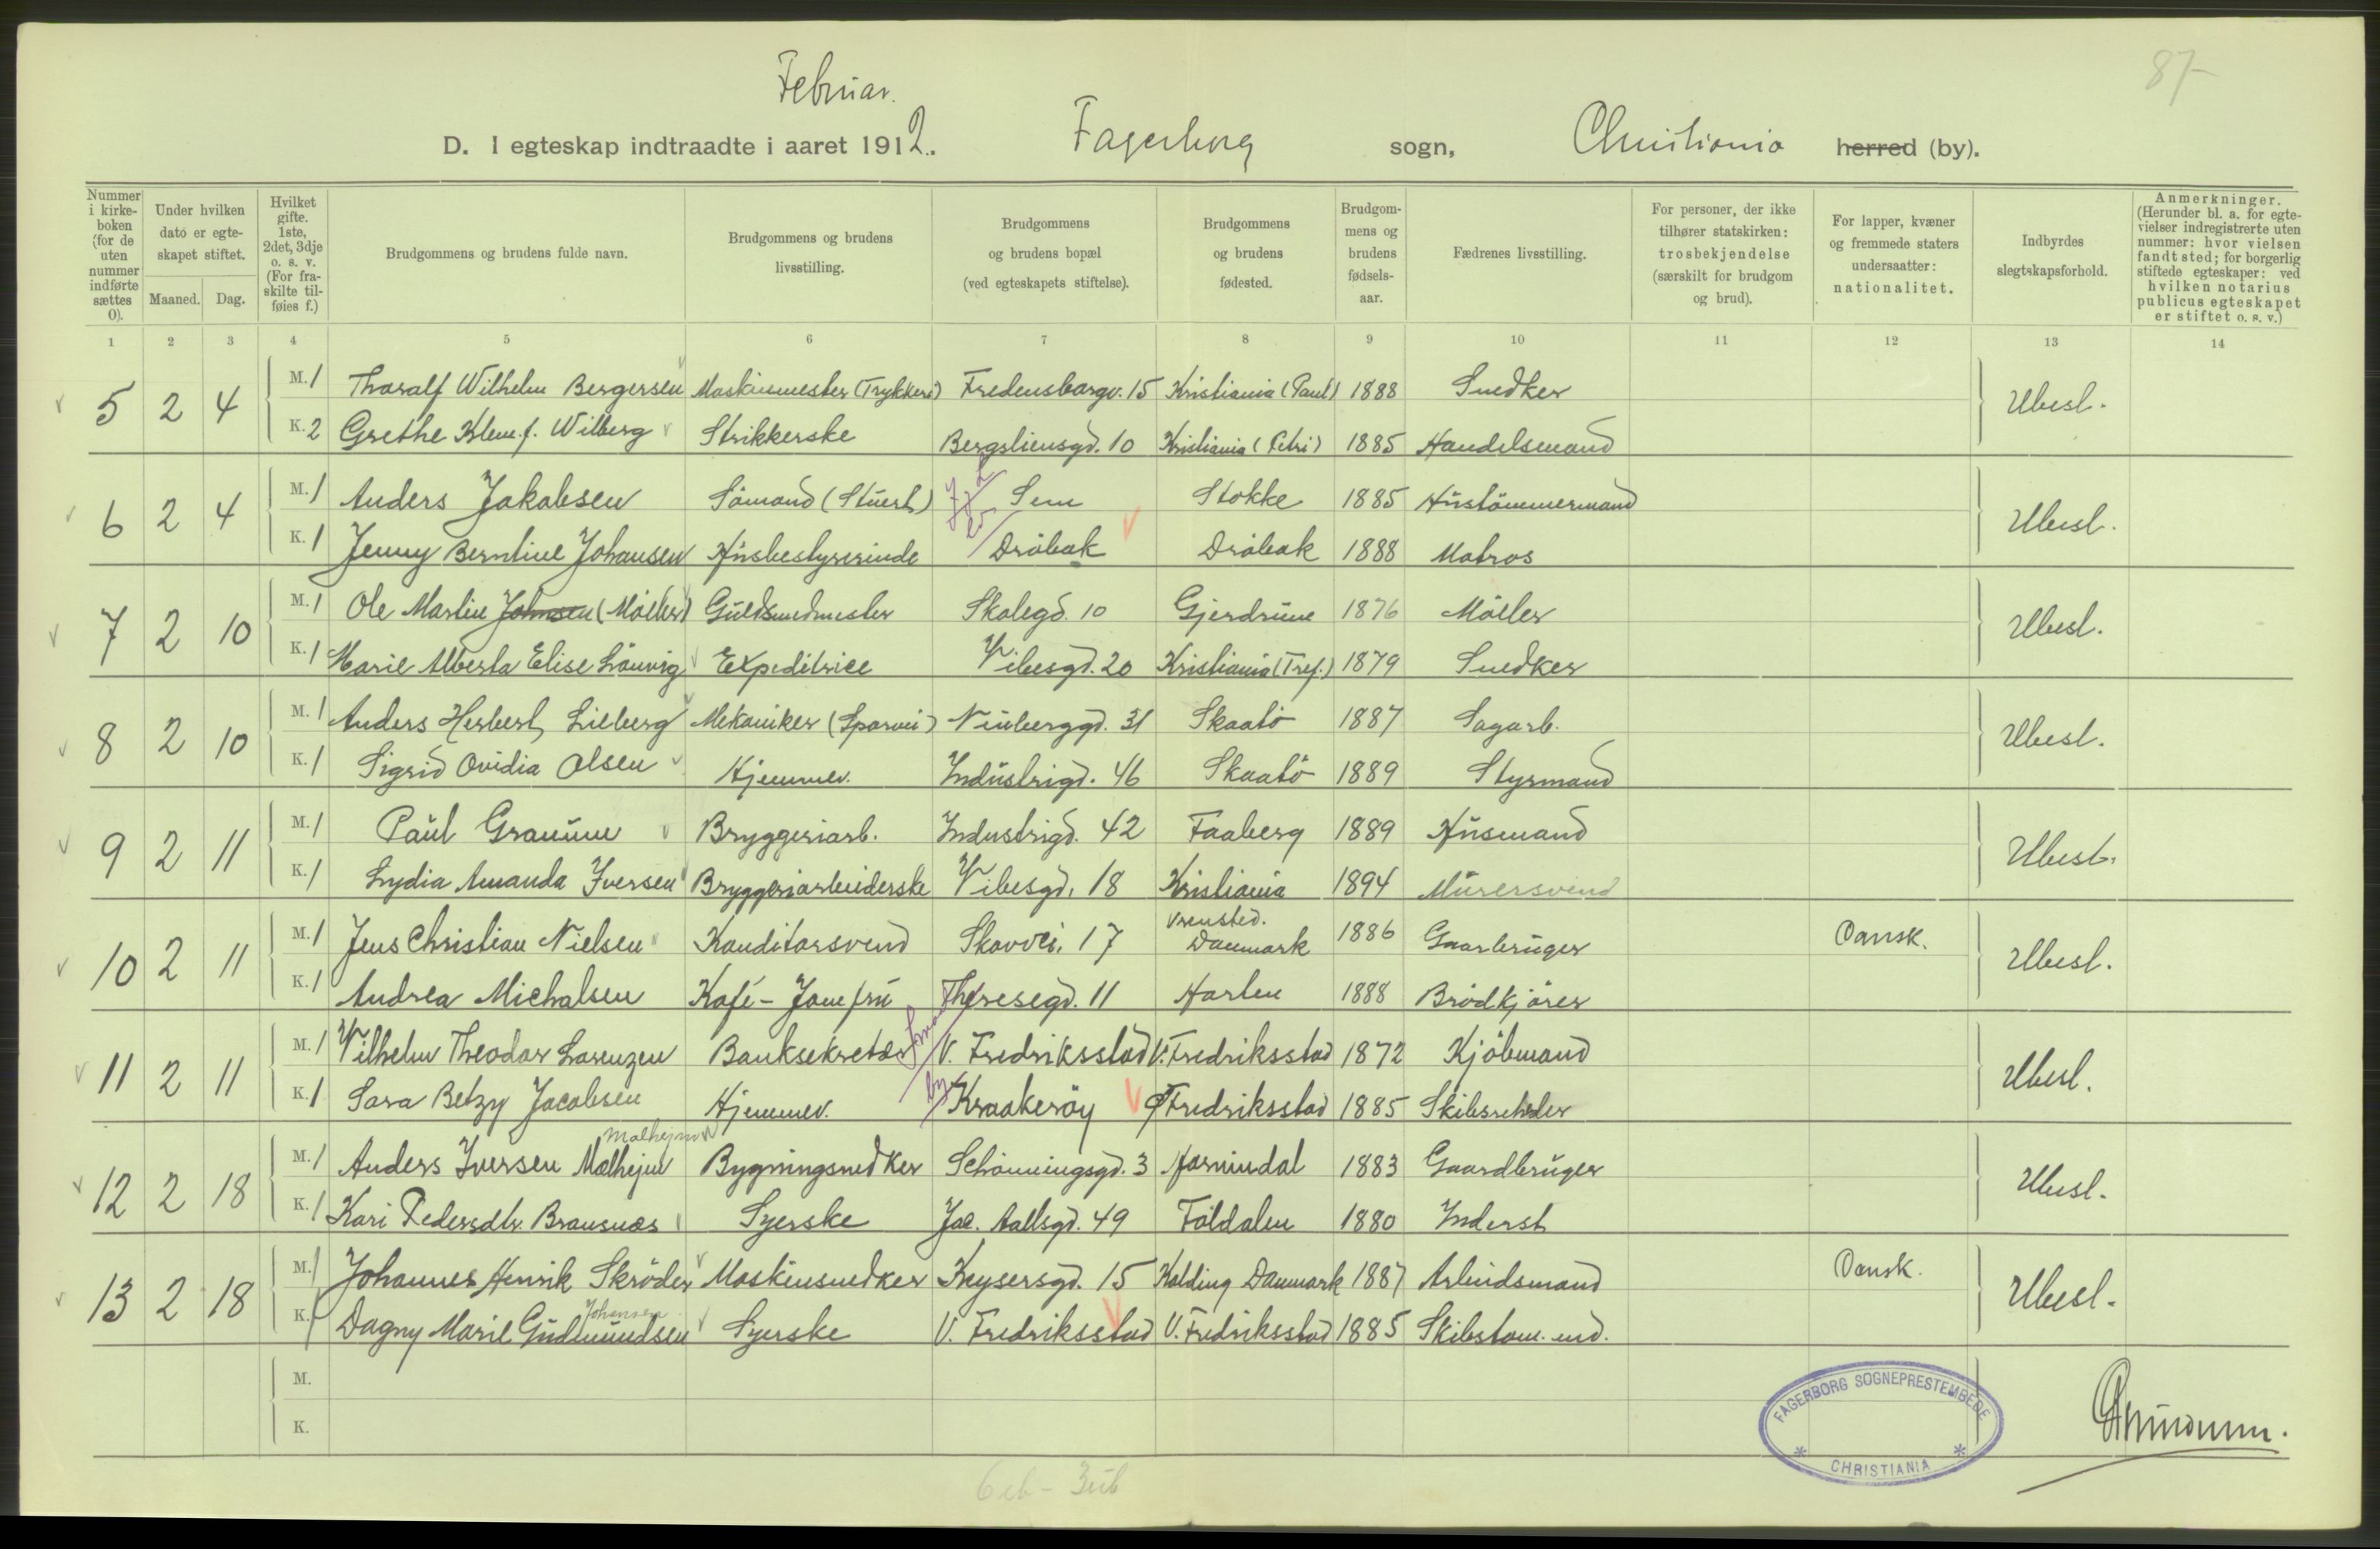 87
Februar.
D. I egteskap indtraadte i aaret 1912. Fagerborg sogn, Christiania herred (by).
Nummer i kirke-boken (for de uten nummer indførte sættes 0).
Under hvilken dato er egte-skapet stiftet.
Maaned. Dag.
Hvilket gifte. 1ste, 2det, 3dje o. s. v. (For fra-skilte til-føies f.)
Brudgommens og brudens fulde navn.
Brudgommens og brudens livsstilling.
Brudgommens og brudens bopæl (ved egteskapets stiftelse).
Brudgommens og brudens fødested.
Brudgom-mens og brudens fødsels-aar.
Fædrenes livsstilling.
For personer, der ikke tilhører statskirken: trosbekjendelse (særskilt for brudgom og brud).
For lapper, kvæner og fremmede staters undersaatter: nationalitet.
Indbyrdes slegtskapsforhold.
Anmerkninger. (Herunder bl. a. for egte-vielser indregistrerte uten nummer: hvor vielsen fandt sted; for borgerlig stiftede egteskaper: ved hvilken notarius publicus egteskapet er stiftet o. s. v.)
1 2 3 4 5 6 7 8 9 10 11 12 13 14
5 2 4 M. 1 Thoralf Wilhelm Bergersen Maskinmester (Trykkeri) Fredensborgv. 15 Kristiania (Paul) 1888 Snedker Ubesl.
K. 2 Grethe Klem. f. Wilberg Strikkerske Bergsliensgd. 10 Kristiania (Petri) 1885 Handelsmand
6 2 4 M. 1 Anders Jakobsen Sömand (Stuert) Sem Stokke 1885 Hustömmermand Ubesl.
K. 1 Jenny Berntine Johansen Husbestyrerinde Dröbak Dröbak 1888 Matros
7 2 10 M. 1 Ole Martin Johnsen (Möller) Guldsmedmester Skolegd. 10 Gjerdrum 1876 Möller Ubesl.
K. 1 Marie Alberta Elise Lönvig Expeditrice Vibesgd. 20 Kristiania (Tref.) 1879 Snedker
8 2 10 M. 1 Anders Herbert Lieberg Mekaniker (Sporvei) Nüberggd. 31 Skaatö 1887 Sagarb. Ubesl.
K. 1 Sigrid Ovidia Olsen Hjemmev. Industrigd. 46 Skaatö 1889 Styrmand
9 2 11 M. 1 Paul Graunum Bryggeriarb. Industrigd. 42 Faaberg 1889 Husmand Ubesl.
K. 1 Lydia Amanda Iversen Bryggeriarbeiderske Vibesgd. 18 Kristiania 1894 Murersvend
10 2 11 M. 1 Jens Christian Nielsen Konditorsvend Skovvei. 17 Vrensted. Danmark 1886 Gaarbruger Dansk. Ubesl.
K. 1 Andrea Michalsen Kafé-Jomfru Theresegd. 11 Horten 1888 Brödkjörer
11 2 11 M. 1 Wilhelm Theodor Lorenzen Banksekretær V. Fredriksstad V. Fredriksstad 1872 Kjöbmand Ubesl.
K. 1 Sara Betzy Jacobsen Hjemmev. Kraakeröy Fredriksstad 1885 Skibsreheder
Malhejm
12 2 18 M. 1 Anders Iversen Mælhejm Bygningsnedker Schönningsgd. 3 Hornindal 1883 Gaardbruger Ubesl.
K. 1 Kari Pedersdtr. Bransnæs Syerske Jac. Aallsgd. 49 Foldalen 1880 Inderst
13 2 18 M. 1 Johannes Henrik Skröder Maskinsnedker Keysersgd. 15 Kolding Danmark 1887 Arbeidsmand Dansk. Ubesl.
Johansen
K. 1 Dagny Marie Gudmundsen Syerske V. Fredriksstad V. Fredriksstad 1885 Skibstøm. md.
M.
K.
FAGERBORG SOGNEPRESTEMBEDE
* CHRISTIANIA *